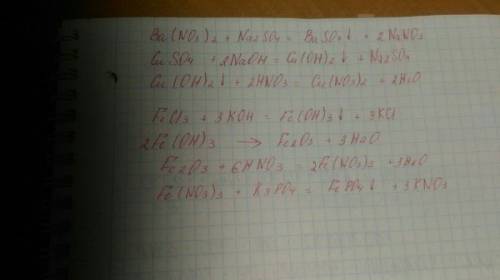 Ba(NO3)2 + Na2SO4 = BaSO4↓ + 2NaNO3
CuSO4 + 2NaOH = Cu(OH)2↓ + Na2SO4
Cu(OH)2↓ + 2HNO3 = Cu(NO3)2 + 2H2O
FeCl3 + 3KOH = Fe(OH)3↓ + 3KCl
2Fe(OH)3 → Fe2O3 + 3H2O
Fe2O3 + 6HNO3 = 2Fe(NO3)3 + 3H2O
Fe(NO3)3 + K3PO4 = FePO4↓ + 3KNO3